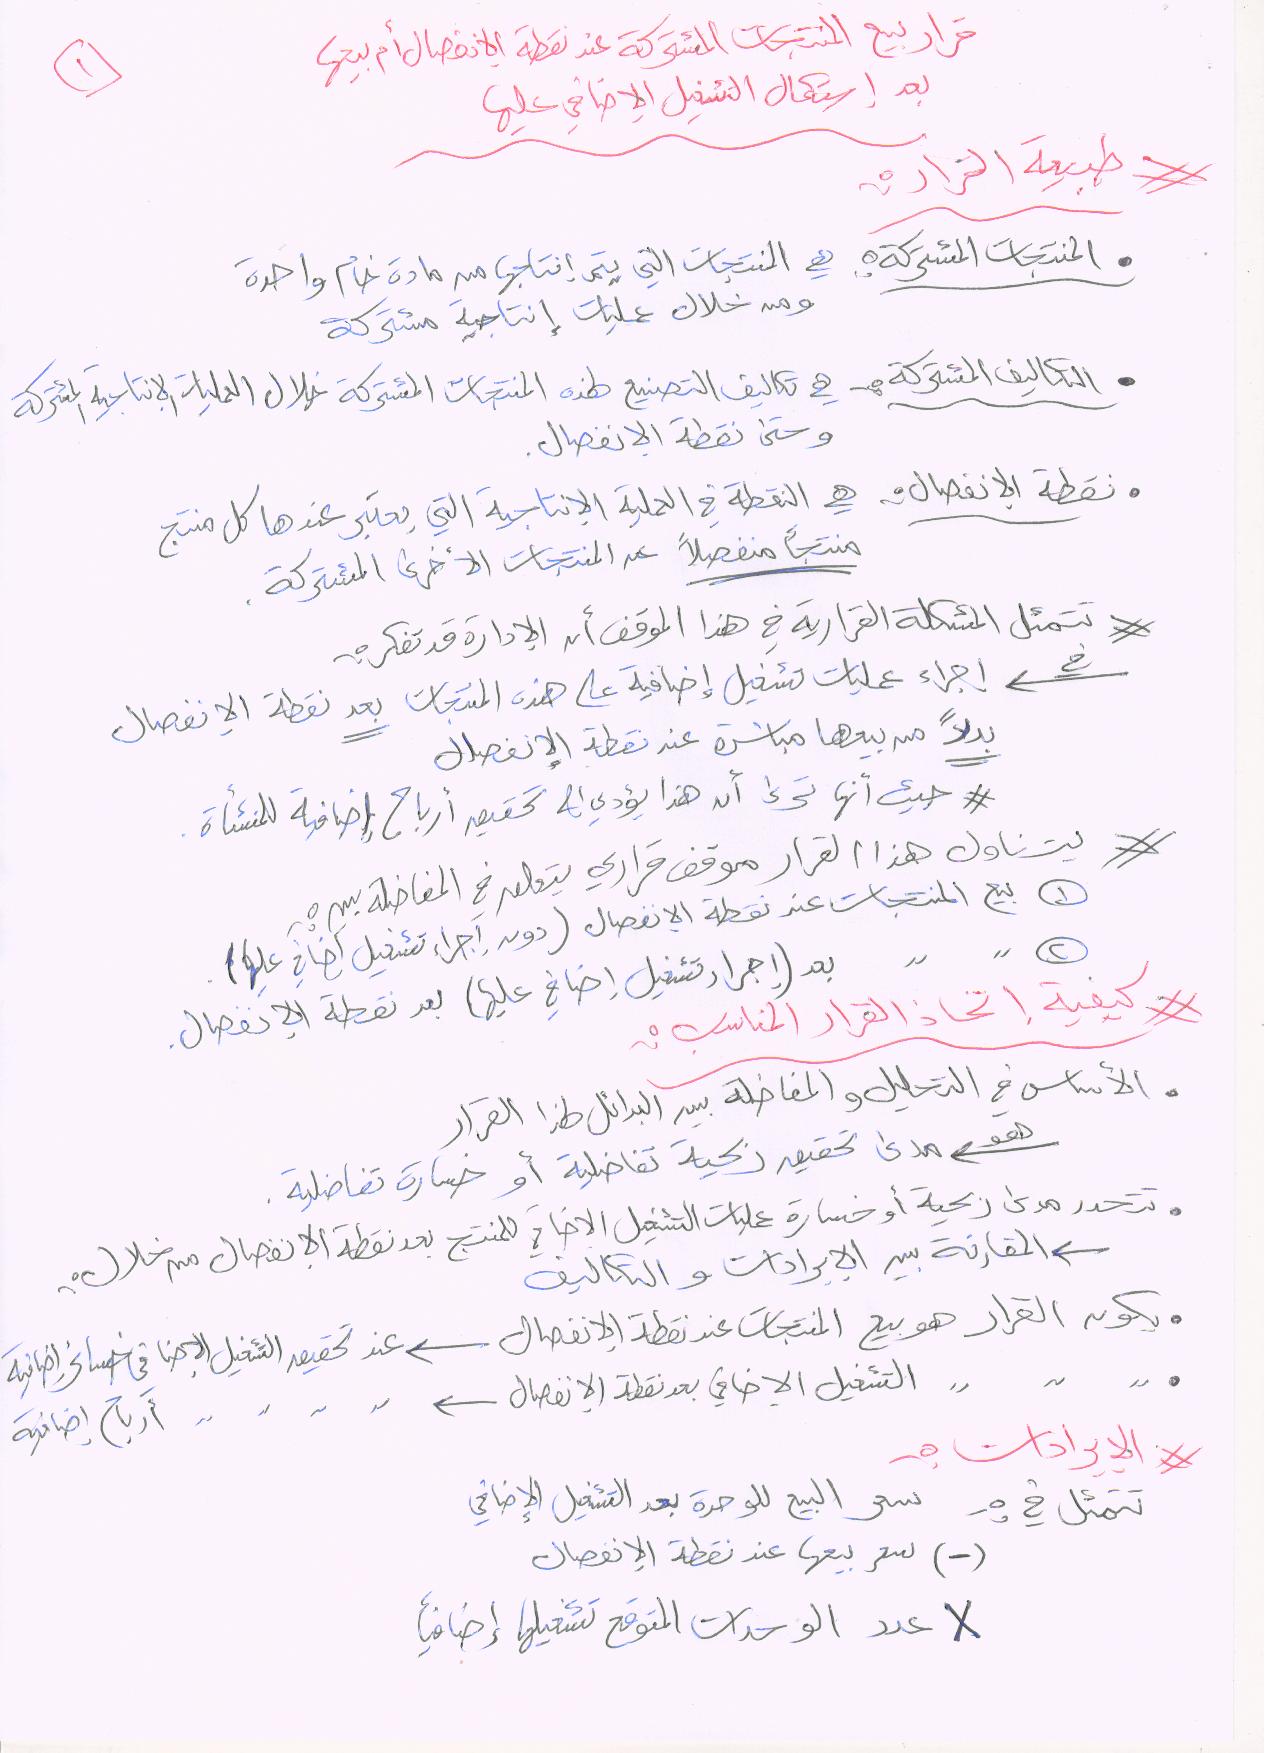 ١
قرار بيع المنتجات المشتركة عند نقطة الإنفصال أم بيعها
بعد إستكمال التشغيل الإضافي عليها
# طبيعة القرار :-
• المنتجات المشتركة: هي المنتجات التي يتم إنتاجها من مادة خام واحدة
ومن خلال عمليات إنتاجية مشتركة
• التكاليف المشتركة :- هي تكاليف التصنيع لهذه المنتجات المشتركة خلال العمليات الإنتاجية المشتركة
وحتى نقطة الإنفصال.
• نقطة الإنفصال :- هي النقطة في العملية الإنتاجية التي يعتبر عندها كل منتج
منتجاً منفصلاً عن المنتجات الأخرى المشتركة.
# تتمثل المشكلة القرارية في هذا الموقف أن الإدارة قد تفكر :-
في ← إجراء عمليات تشغيل إضافية على هذه المنتجات بعد نقطة الإنفصال
بدلاً من بيعها مباشرة عند نقطة الإنفصال
# حيث أنها ترى أن هذا يؤدي إلى تحقيق أرباح إضافية للمنشأة.
# يتناول هذا القرار موقف قراري يتعلق في المفاضلة بين :-
① بيع المنتجات عند نقطة الإنفصال (دون إجراء تشغيل إضافي عليها).
② 〃 〃 بعد (إجراء تشغيل إضافي عليها) بعد نقطة الإنفصال.
# كيفية إتخاذ القرار المناسب :-
• الأساس في التحليل و المفاضلة بين البدائل لهذا القرار
هو ← مدى تحقيق ربحية تفاضلية أو خسارة تفاضلية.
• تتحدد مدى ربحية أو خسارة عمليات التشغيل الإضافي للمنتج بعد نقطة الإنفصال من خلال :-
← المقارنة بين الإيرادات و التكاليف
• يكون القرار هو بيع المنتجات عند نقطة الإنفصال ← عند تحقيق التشغيل الإضافي خسائر إضافية
• 〃 〃 〃 التشغيل الإضافي بعد نقطة الإنفصال ← 〃 〃 〃 〃 أرباح إضافية
# الإيرادات :-
تتمثل في :- سعر البيع للوحدة بعد التشغيل الإضافي
(-) سعر بيعها عند نقطة الإنفصال
X عدد الوحدات المتوقع تشغيلها إضافياً